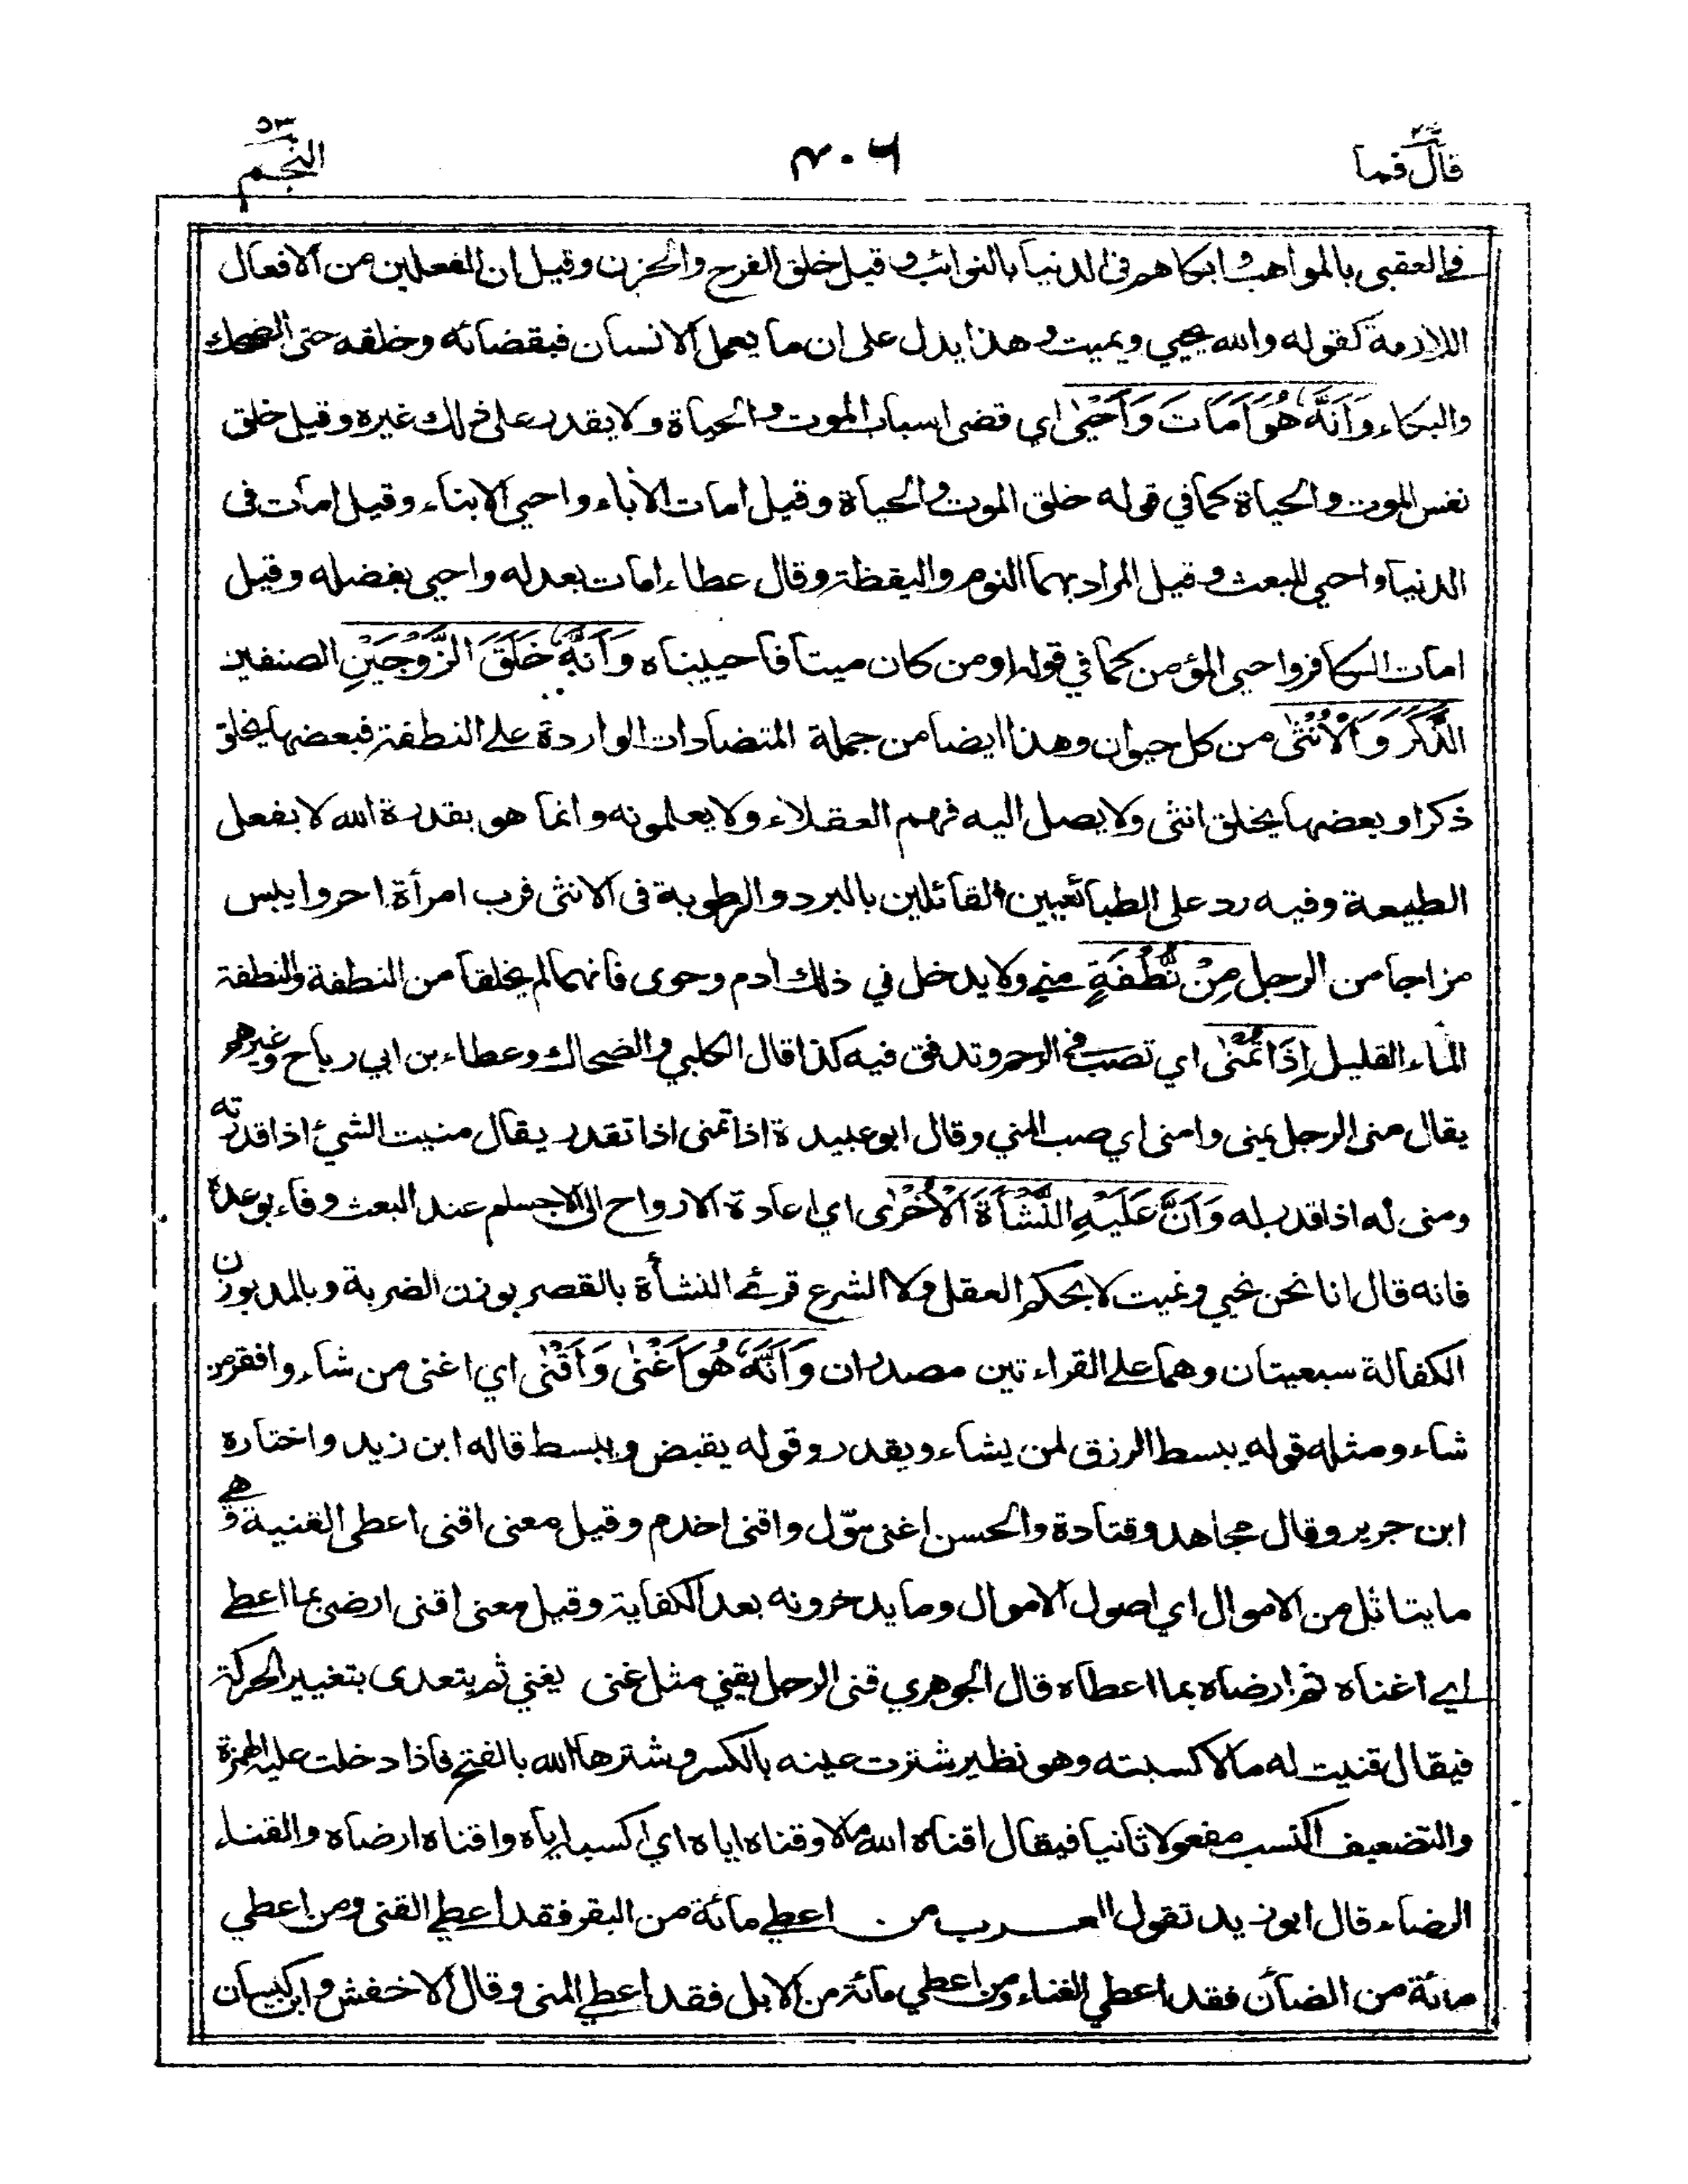 قال فما ٢٧
٤٠٦
النجم ٥٣
في العقبى بالمواهب وابكاهم في الدنيا بالنوائب وقيل خلق الفرح والحزن وقيل ان الفعلين من الافعال
اللازمة كقوله والله يحيي ويميت وهذا يدل على ان ما يعمل الانسان فبقضائه وخلقه حتى الضحك
والبكاء وَاَنَّهٗ هُوَ اَمَاتَ وَاَحْيٰى اي قضى اسباب الموت والحياة ولا يقدر على ذلك غيره وقيل خلق
نفس الموت والحياة كما في قوله خلق الموت والحياة وقيل امات الأباء واحيي الابناء وقيل امات في
الدنيا واحيي للبعث وقيل المراد بهما النوم واليقظة وقال عطاء امات بعدله واحيى بفضله وقيل
امات الكافر واحيى المؤمن كما في قوله او من كان ميتا فاحييناه وَاَنَّهٗ خَلَقَ الزَّوْجَيْنِ الصنفين
الذَّكَرَ وَالْاُنْثٰى من كل حيوان وهذا ايضا من جملة المتضادات الواردة على النطفة فبعضها يخلق
ذكرا وبعضها يخلق انثى ولا يصل اليه فهم العقلاء ولا يعلمونه وانما هو بقدرة الله لا بفعل
الطبيعة وفيه رد على الطبائعيين القائلين بالبرد والرطوبة في الانثى فرب امرأة احر وايبس
مزاجا من الرجل مِنْ نُّطْفَةٍ مني ولا يدخل في ذلك ادم وحوى فانهما لم يخلقا من النطفة والنطفة
الماء القليل اِذَا تُمْنٰى اي تصب في الرحم وتدفق فيه كذا قال الكلبي والضحاك وعطاء بن ابي رباح وغيرهم
يقال منى الرجل يمنى وامنى اي صب المني وقال ابو عبيدة اذا تمنى اذا تقدر يقال منيت الشيء اذا قدرته
ومنى له اذا قدر له وَاَنَّ عَلَيْهِ النَّشْاَةَ الْاُخْرٰى اي اعادة الارواح الى الاجسام عند البعث وفاء بوعده
فانه قال انا نحن نحيي ونميت لا بحكم العقل ولا الشرع قرئ النشأة بالقصر بوزن الضربة وبالمد بوزن
الكفالة سبعيتان وهما على القراءتين مصدران وَاَنَّهٗ هُوَ اَغْنٰى وَاَقْنٰى اي اغنى من شاء وافقر من
شاء ومثله قوله يبسط الرزق لمن يشاء ويقدر وقوله يقبض ويبسط قاله ابن زيد واختاره
ابن جرير وقال مجاهد وقتادة والحسن اغنى موّل واقنى اخدم وقيل معنى اقنى اعطى القنية وهي
ما يتاثل من الاموال اي اصول الاموال وما يدخرونه بعد الكفاية وقيل معنى اقنى ارضى بما اعطى
اي اغناه ثم ارضاه بما اعطاه قال الجوهري قنى الرجل يقنى مثل غنى يغنى ثم يتعدى بتغيير الحركة
فيقال قنيت له مالا كسبته وهو نظير شترت عينه بالكسر وشترها الله بالفتح فاذا دخلت عليه الهمزة
والتضعيف اكتسب مفعولا ثانيا فيقال اقناه الله مالا وقناه اياه اي اكسبه اياه واقناه ارضاه والقناء
الرضاء قال ابو زيد تقول العرب من اعطي مائة من البقر فقد اعطي القنى ومن اعطي
مائة من الضأن فقد اعطي الغناء ومن اعطي مائة من الابل فقد اعطي المنى وقال الاخفش وابن كيسان